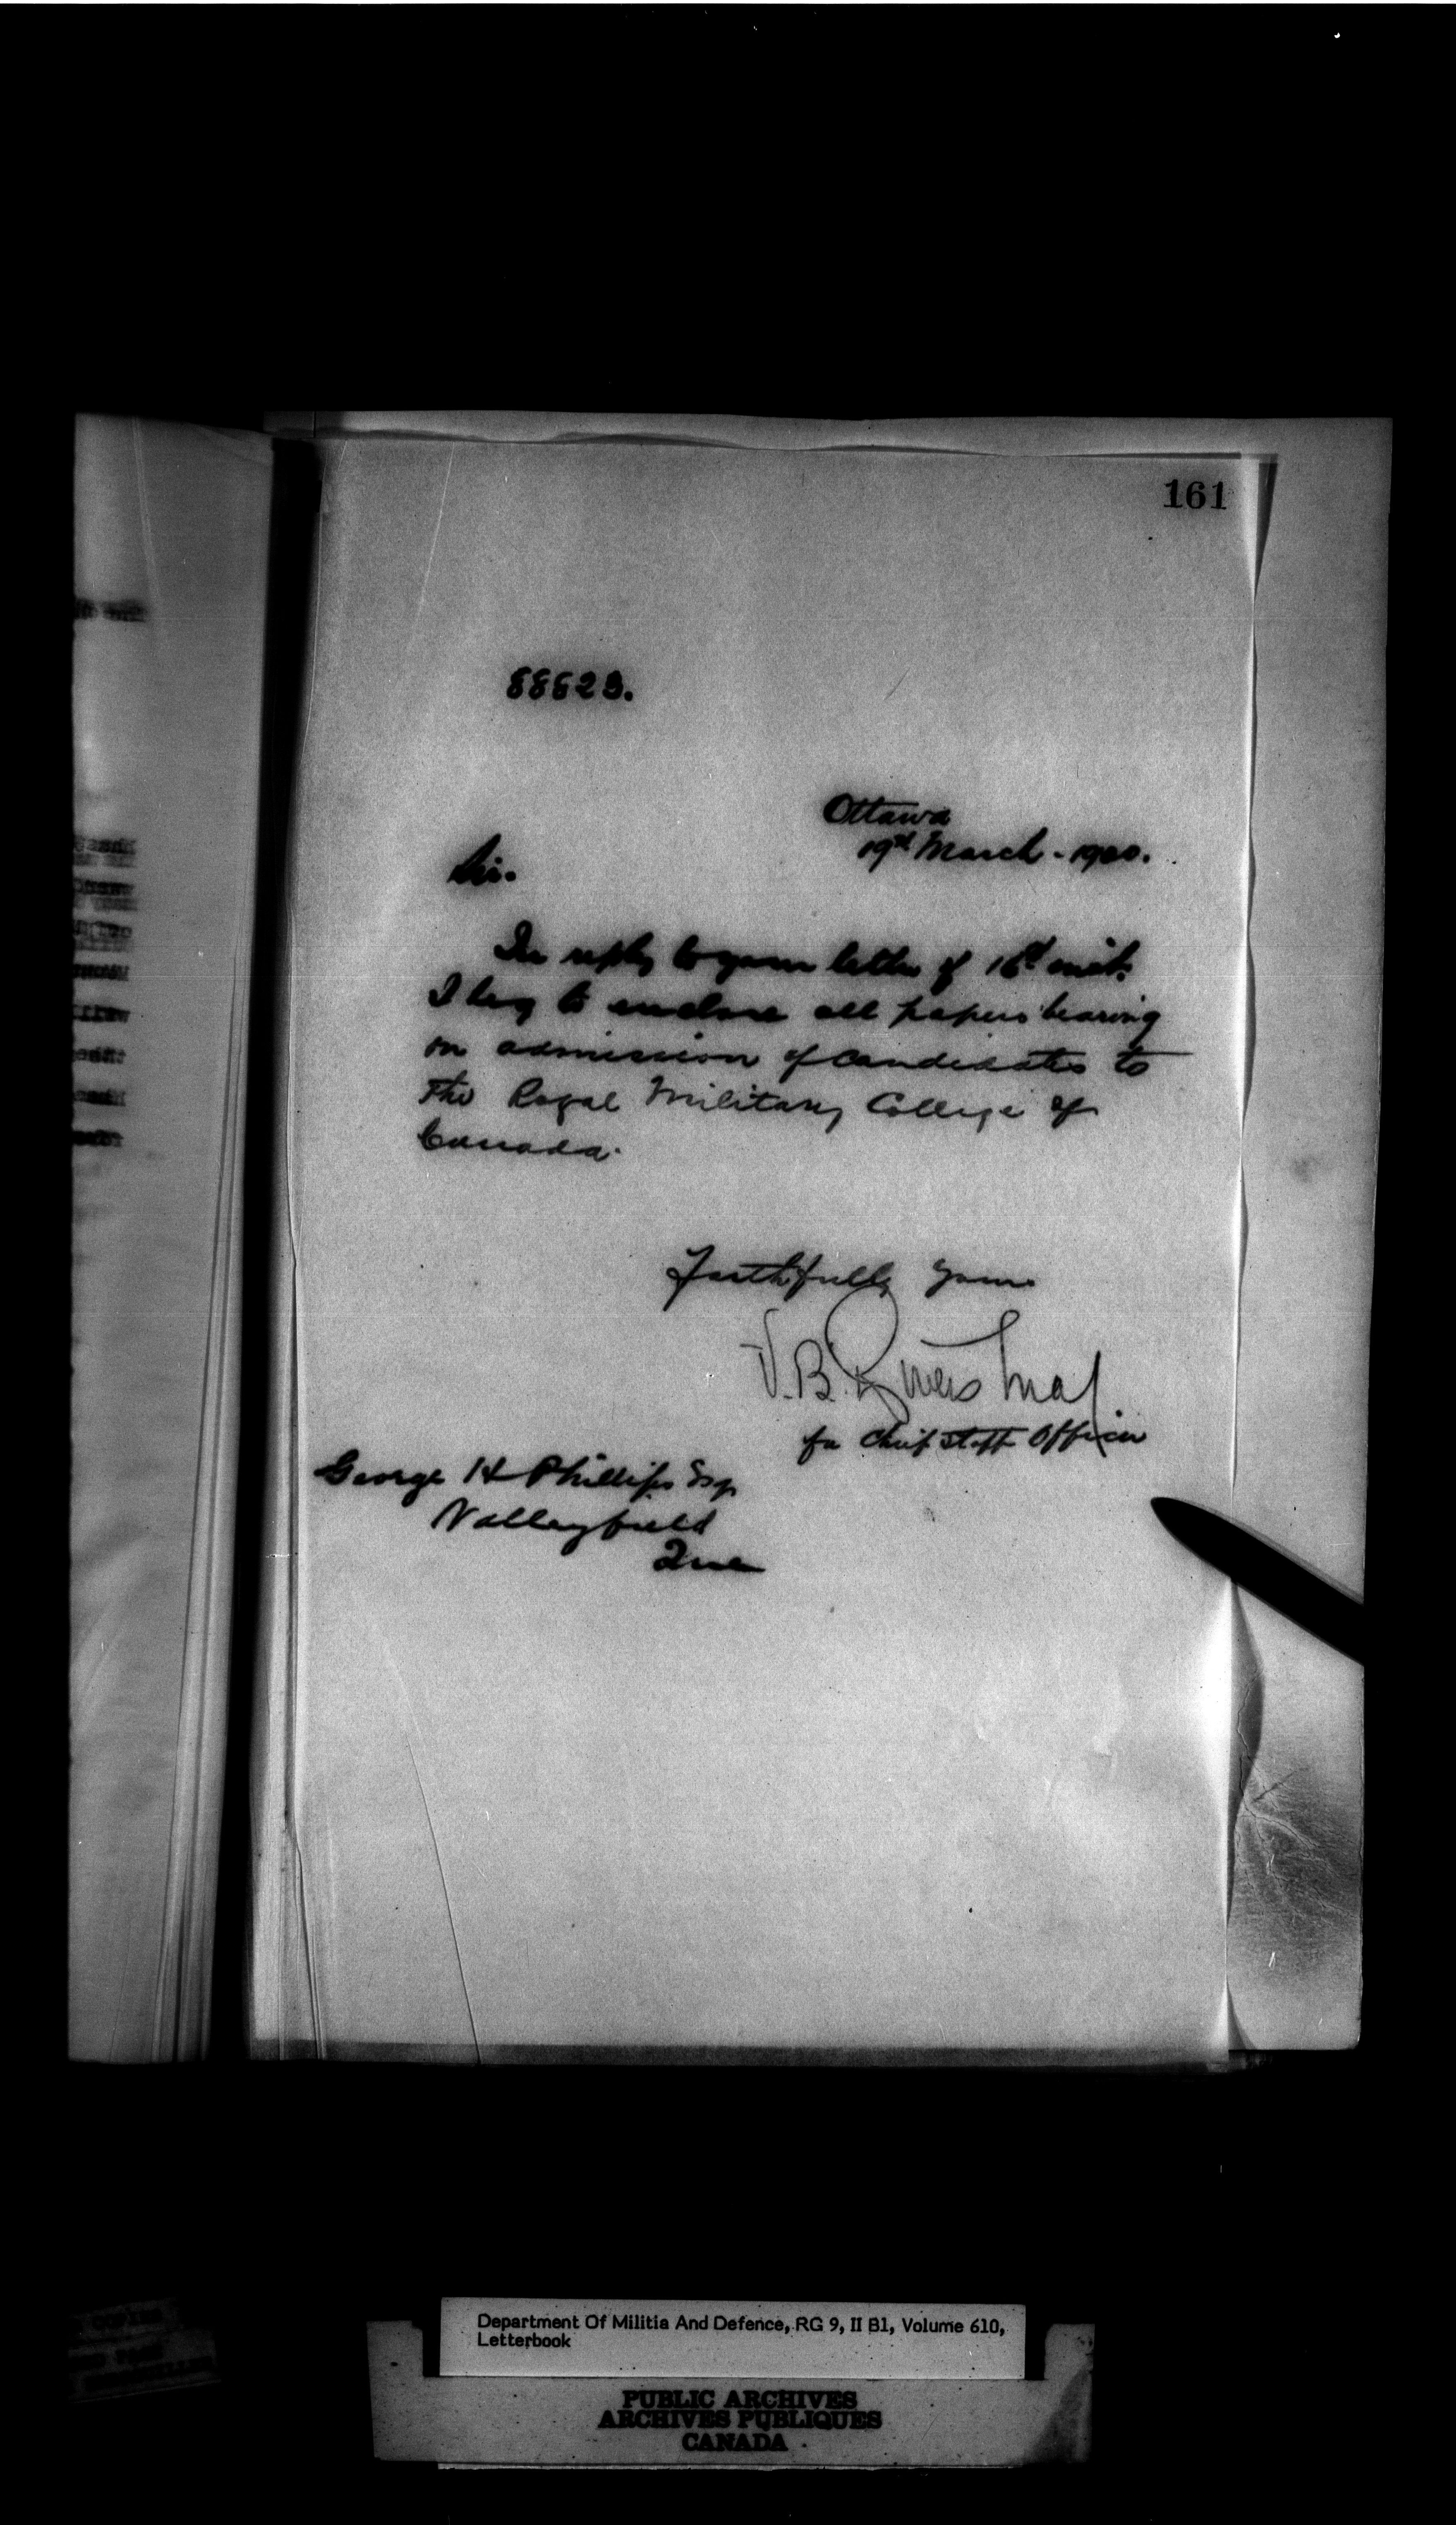 161
88623.
Ottawa
19th March - 1900.
Sir.
In reply to your letter of 16th inst.
I beg to enclose all papers bearing
on admission of Candidates to
The Royal Military College of
Canada.
Faithfully yours
V. B. Rivers Maj
for Chief Staff Officer
George H Phillips Esq
Valleyfield
Que
Department Of Militia And Defence, RG 9, II B1, Volume 610,
Letterbook
PUBLIC ARCHIVES
ARCHIVES PUBLIQUES
CANADA